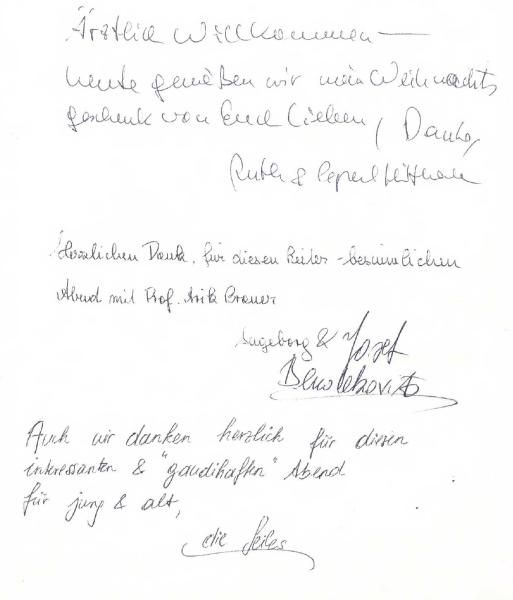 Ärztlich Willkommen —
heute genießen wir mein Weihnachts
geschenk von Euch Lieben, Danke,
Ruth &
Herzlichen Dank, für diesen heiter-besinnlichen
Abend mit Prof. Arik Brauer
Ingeborg & Josef
Auch wir danken herzlich für diesen
interessanten & "gaudihaften" Abend
für jung & alt,
die